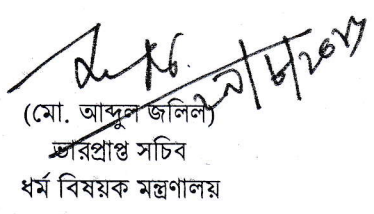 (মো. আব্দুল জলিল)
ভারপ্রাপ্ত সচিব
ধর্ম বিষয়ক মন্ত্রণালয়